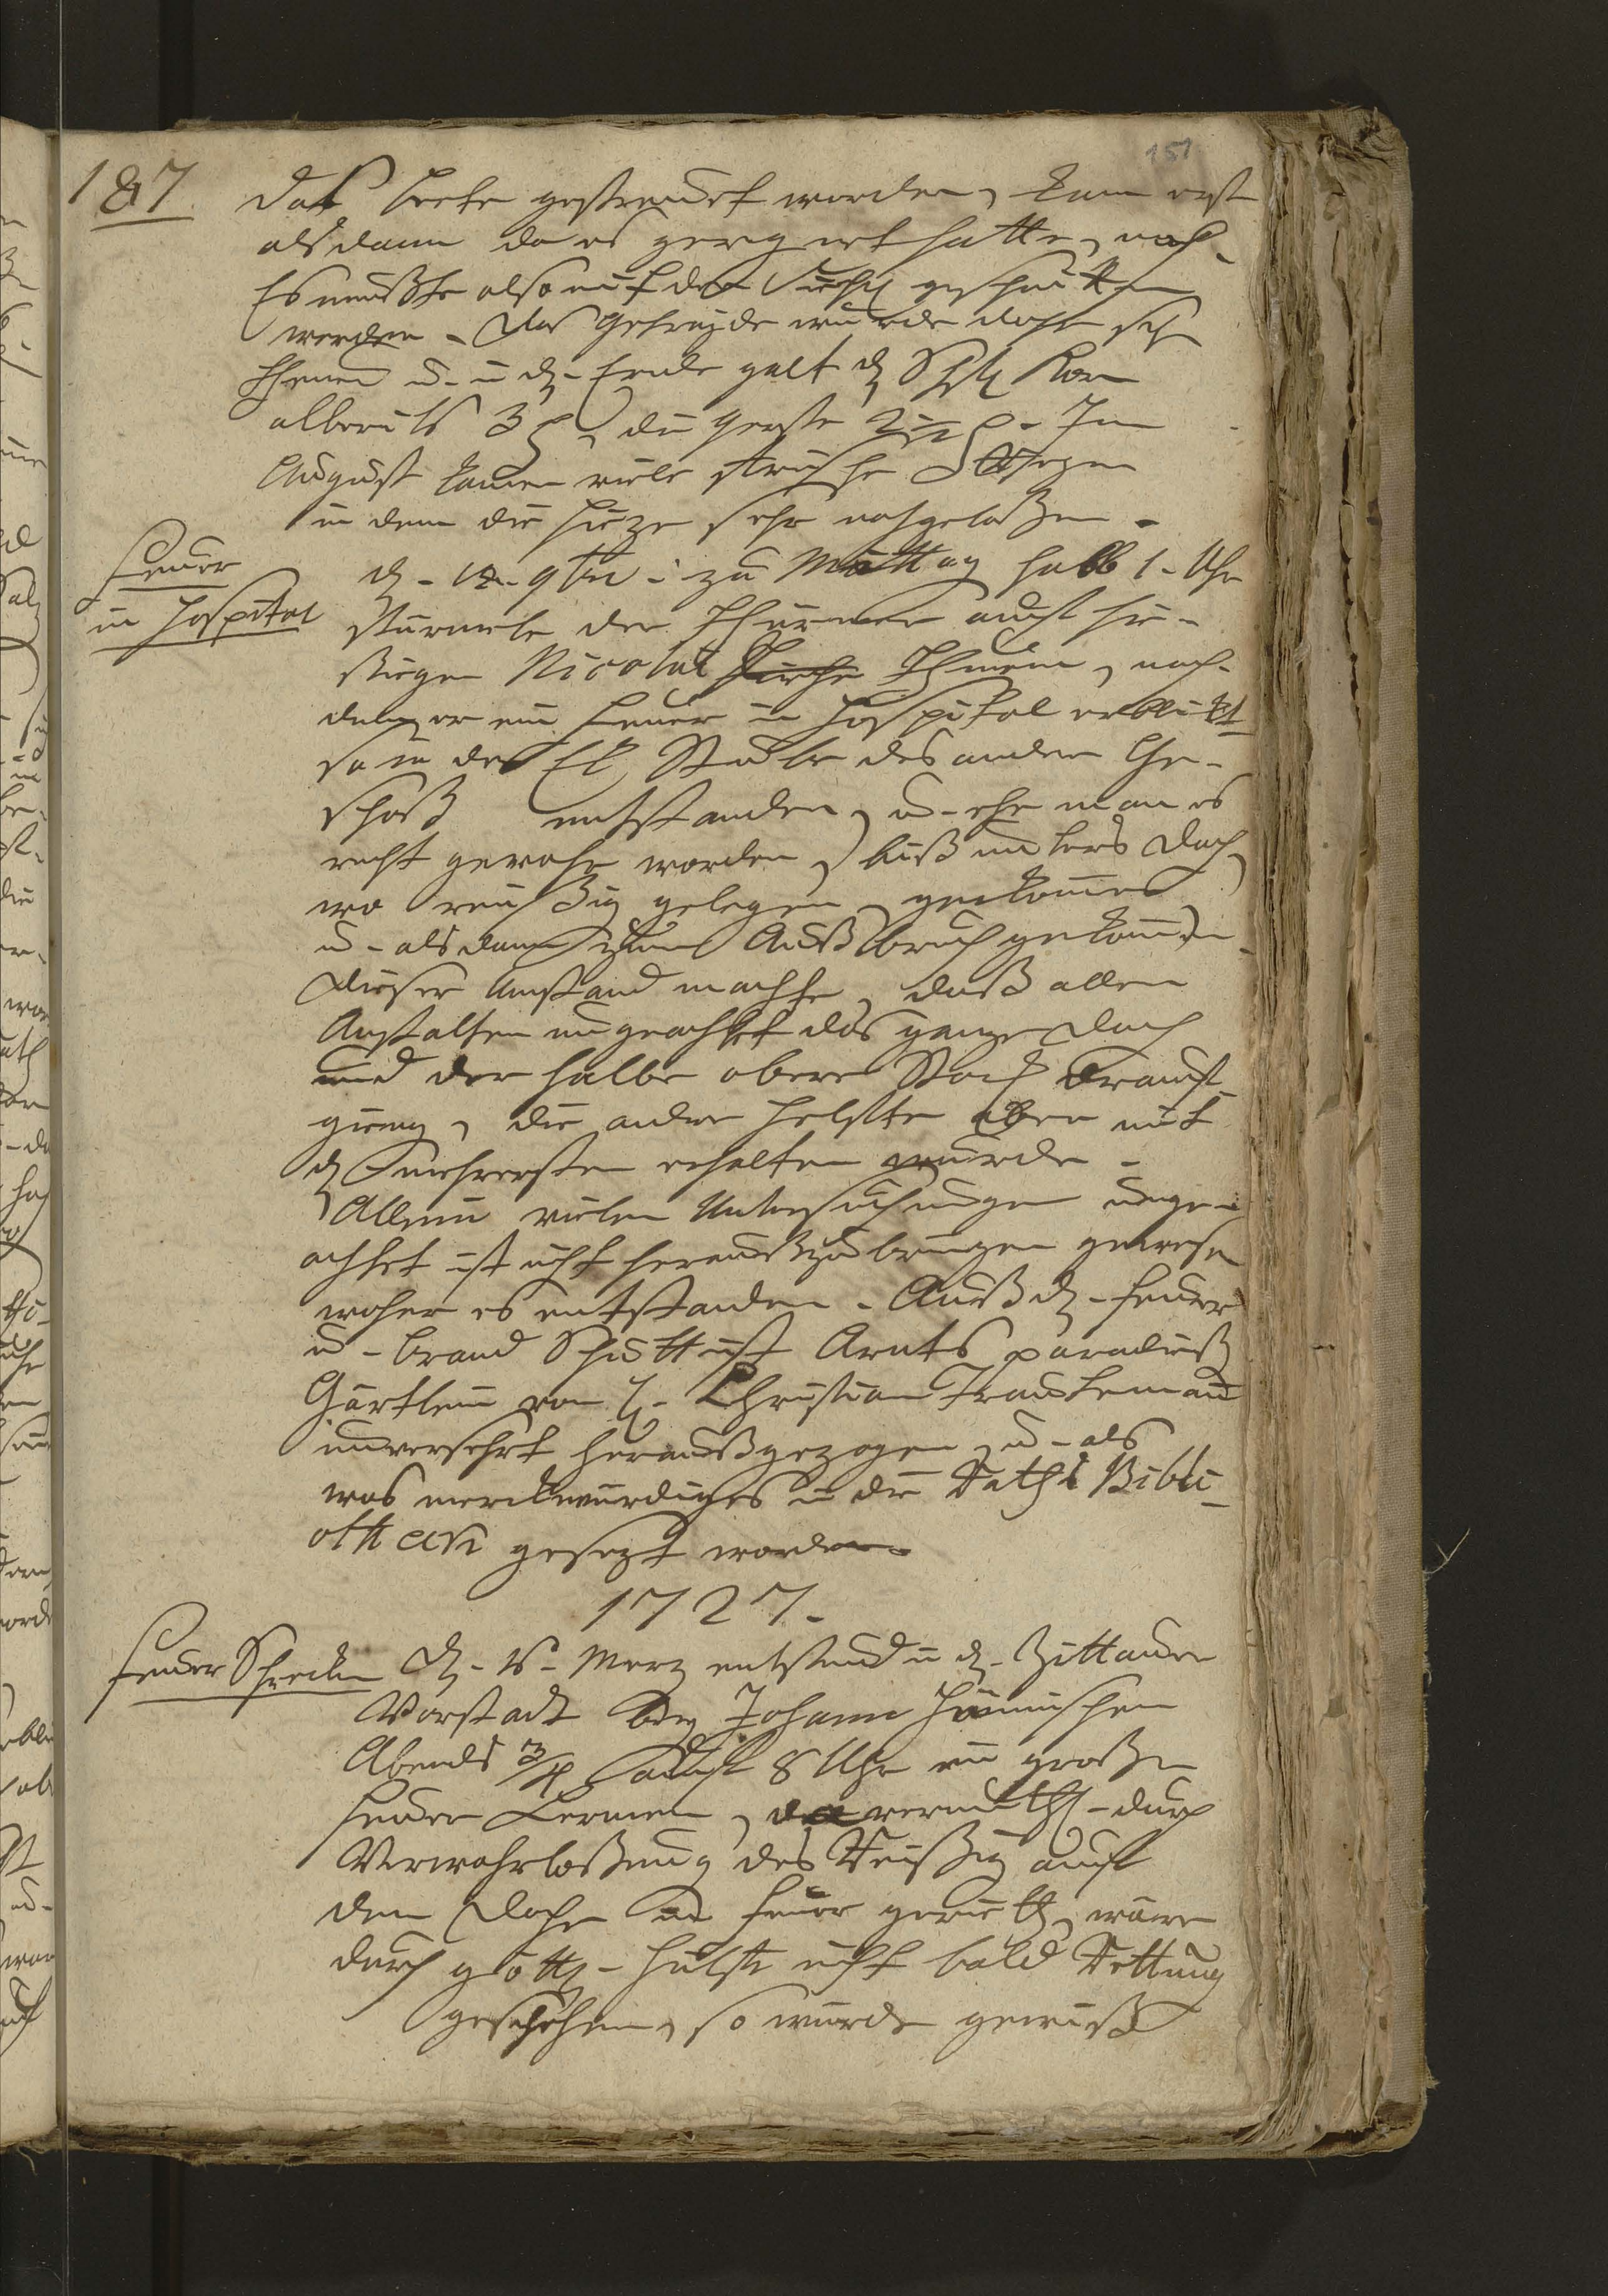 187.
151
das Beete gestreuet worden, kam erst
alsdann da es geregnet hatte, nach.
Es mußte also mit der Sichel geschnitten
werden. Das Getreyde wurde daher sehr
theuer u. in d. Ende galt d. Schfl Korn
allbereits 3 die Gerste 2 Im
August kamen viele Regen
in dem die Hize sehr nachgelaßen.
Feuer
in Hospital
d. 12. 9br zu Mittag halb 1. Uhr
stürmete der Thürmer auf hie-
sigen Nicolai Kirche Thurm, nach-
dem er ein Feuer in Hospital erblickt
so in der Ek Stube des andern Ge-
schoß entstanden, u. ehe man es
recht gewahr worden, biß unters Dach,
wo reißig gelegen, gekommen
u. alsdann zum Außbruch gekommen
Dieser Umstand machte, daß allen
Anstalten ungeachtet das ganze Dach
und der halbe obere Stock drauf-
gieng, die andere Helfte aber mit
d. mehresten erhalten wurde.
Allein vielen Untersuchungen unge-
achtet ist nicht heraußzubringen gewesen
woher es entstanden. Auß d. Feuer
u. Brand Schutt ist Arnts paradieß
Gärtlein von H. Christian Trautemann
unversehrt heraußgezogen, u. als
was merckwürdiges in die Raths Bibli-
othecen gesezt worden.
1727.
Feuer Schrecken
d. 16. Merz entstund in d. Zittauer
Vorstadt bey Johann
Abends 3/4 auf 8 Uhr ein großer
Feuer Lermen, da vermuthl. durch
Verwahrloßung des Reißig auf
dem Dache in Feuer gerieth, wäre
durch göttl. Hülfe nicht bald Rettung
geschehen, so wurde gewiß